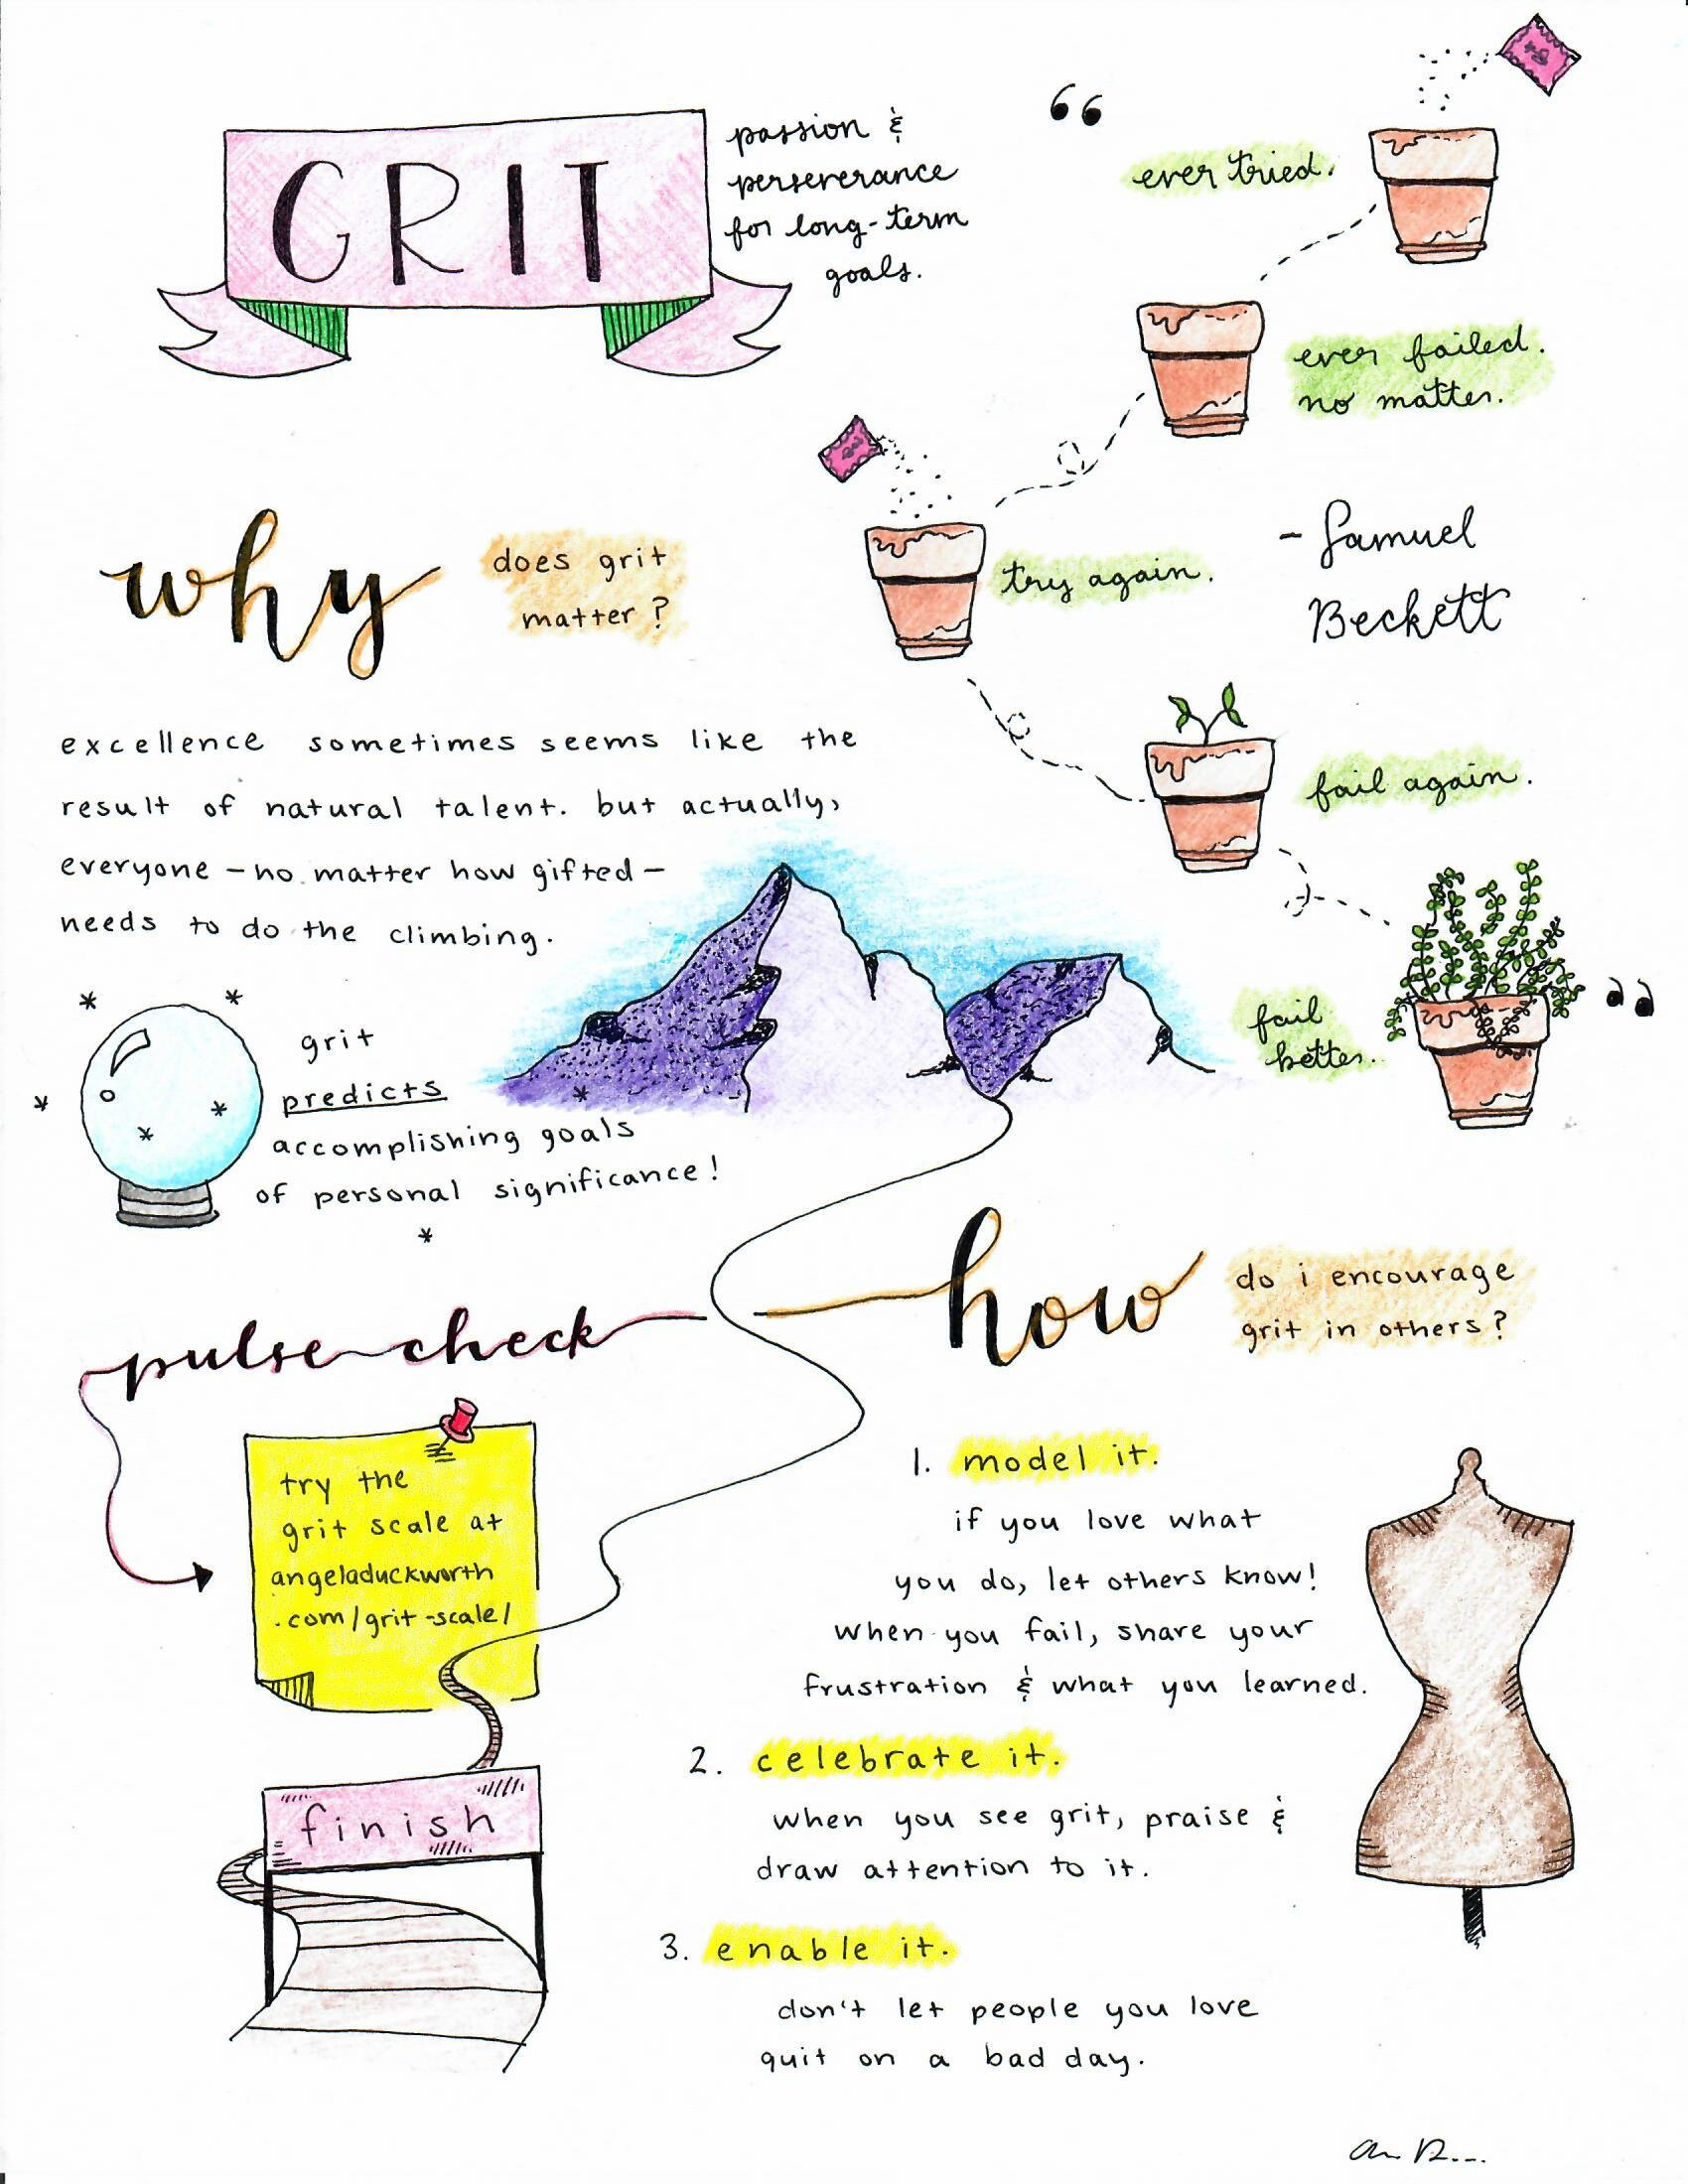 GRIT
passion &
perseverance
for long-term
goals.
“
ever tried.
ever failed.
no matter.
try again.
- Samuel
Beckett
fail again.
fail
better.
”
why
does grit
matter?
excellence sometimes seems like the
result of natural talent. but actually,
everyone - no matter how gifted -
needs to do the climbing.
grit
predicts
accomplishing goals
of personal significance!
pulse check
try the
grit scale at
angeladuckworth
.com/grit-scale/
finish
how
do i encourage
grit in others?
1. model it.
if you love what
you do, let others know!
when you fail, share your
frustration & what you learned.
2. celebrate it.
when you see grit, praise &
draw attention to it.
3. enable it.
don't let people you love
quit on a bad day.